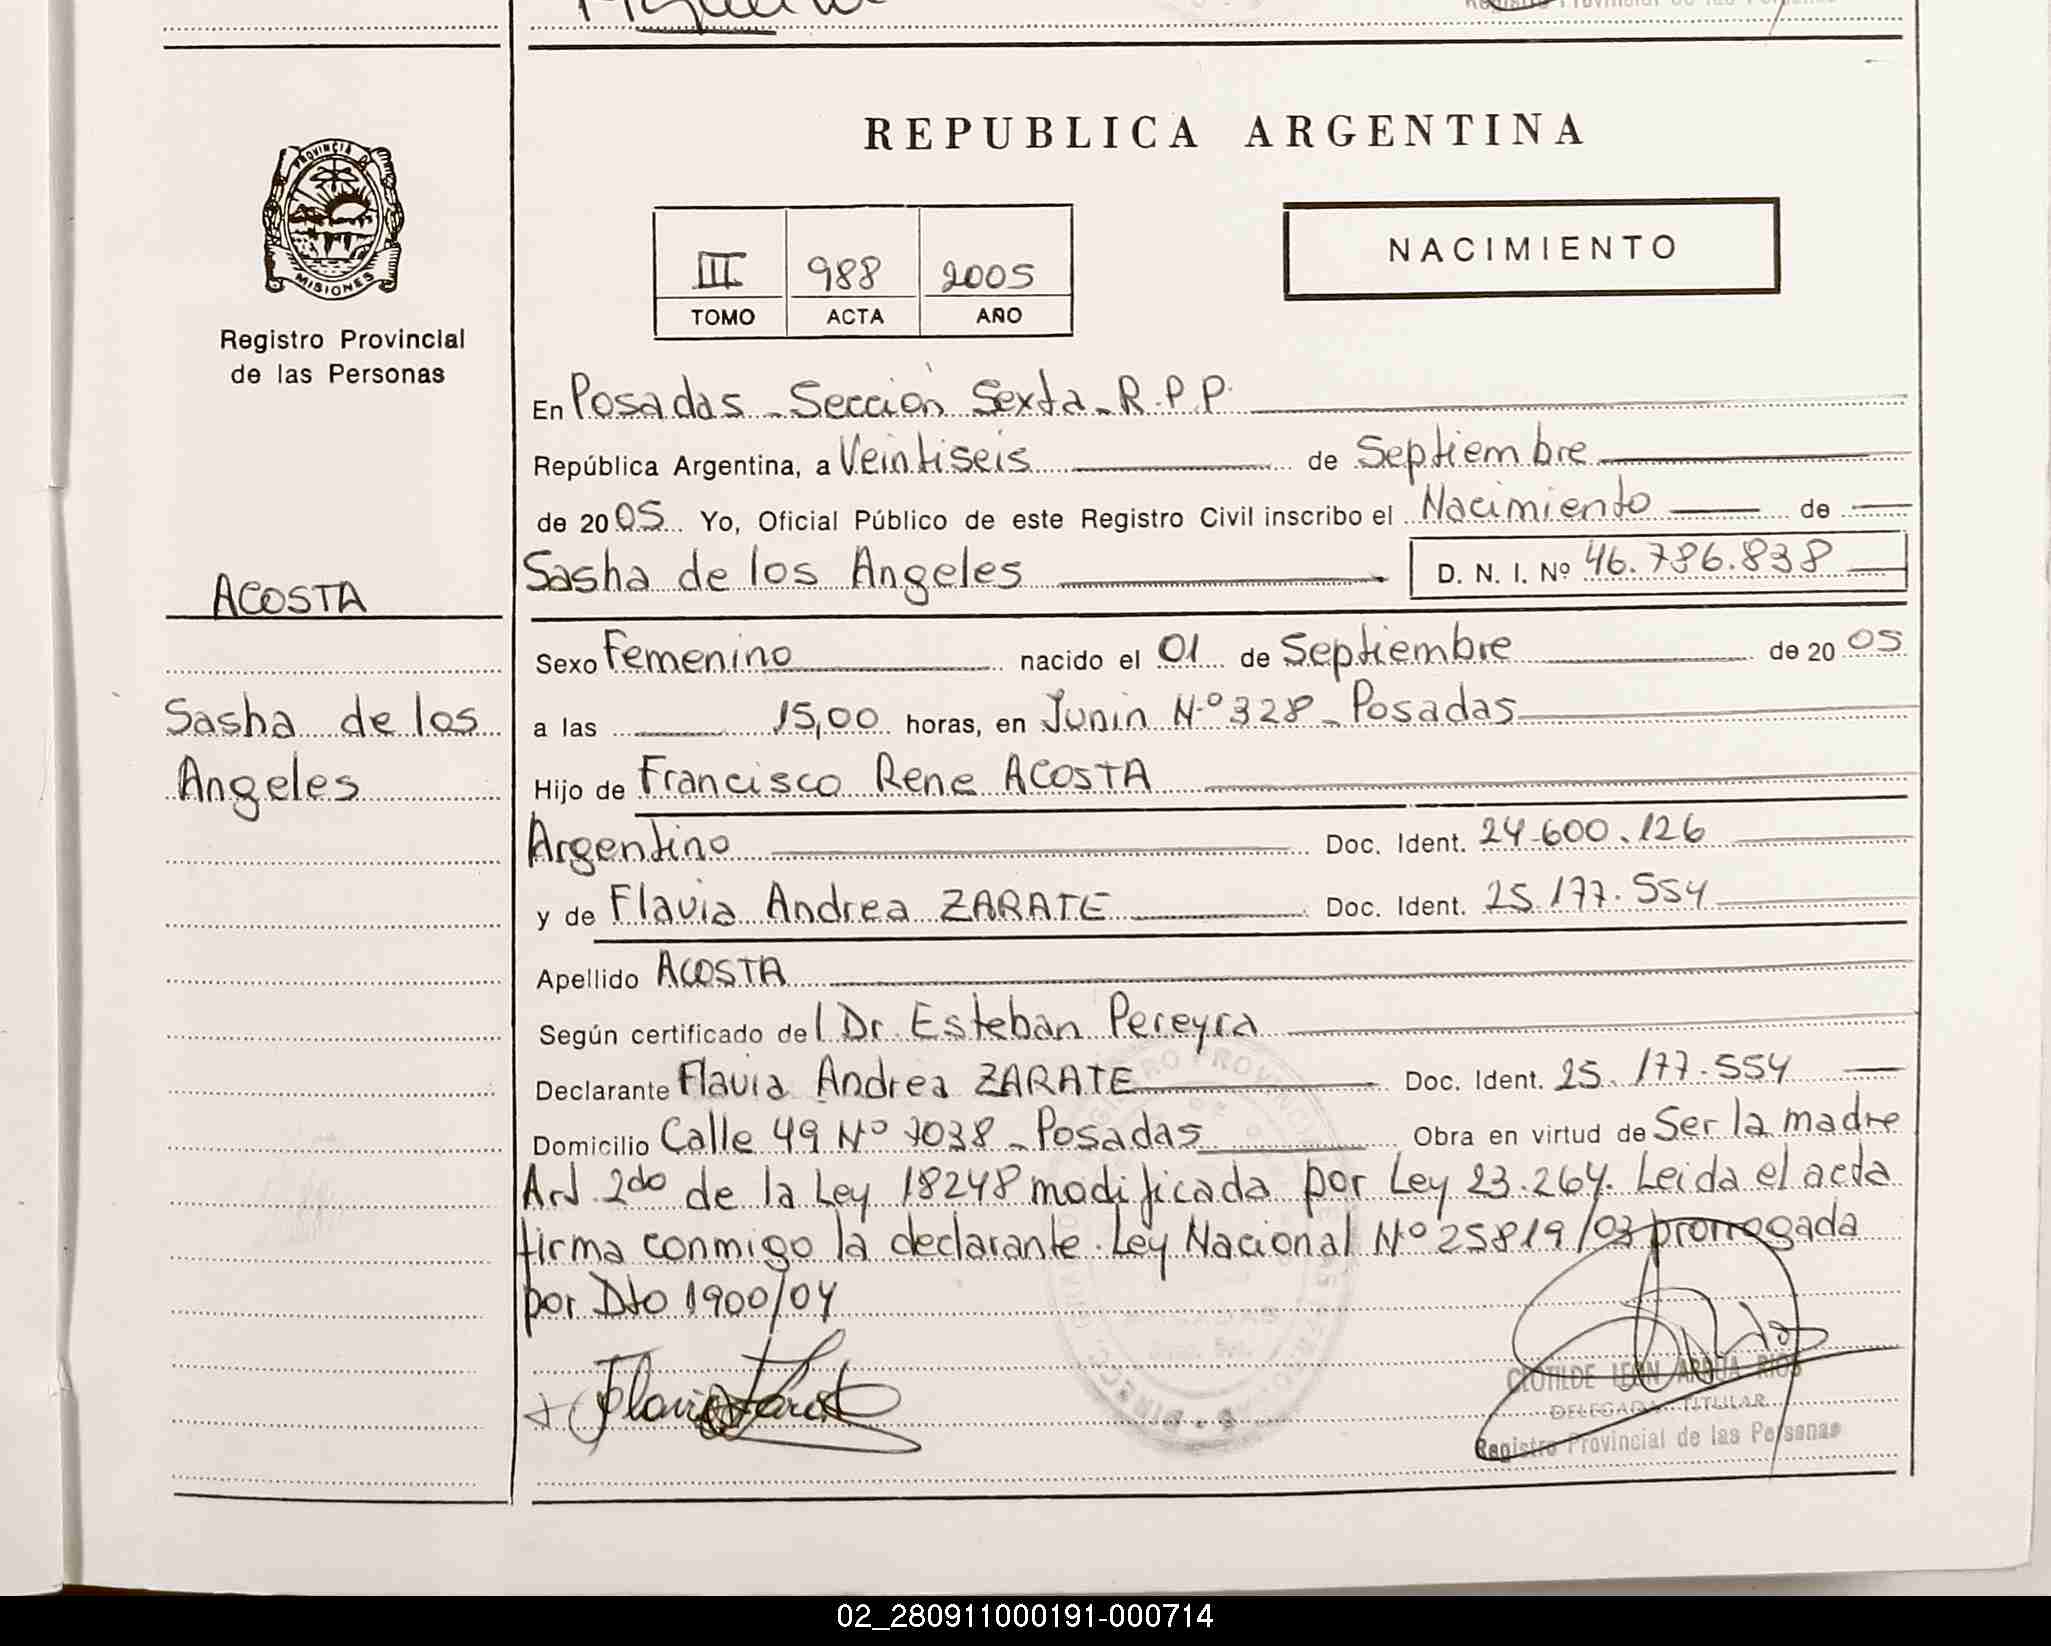 REPUBLICA ARGENTINA
PROVINCIA DE
MISIONES
Registro Provincial
de las Personas
III 988 2005
TOMO ACTA AÑO
NACIMIENTO
En Posadas - Sección Sexta - R.P.P.
República Argentina, a Veintiseis de Septiembre
de 2005 Yo, Oficial Público de este Registro Civil inscribo el Nacimiento de
Sasha de los Angeles D. N. I. Nº 46.786.838
ACOSTA
Sasha de los
Angeles
Sexo Femenino nacido el 01 de Septiembre de 2005
a las 15,00 horas, en Junin Nº 328 - Posadas
Hijo de Francisco Rene ACOSTA
Argentino Doc. Ident. 24.600.126
y de Flavia Andrea ZARATE Doc. Ident. 25.177.554
Apellido ACOSTA
Según certificado del Dr. Esteban Pereyra
Declarante Flavia Andrea ZARATE Doc. Ident. 25.177.554
Domicilio Calle 49 Nº 7038 - Posadas Obra en virtud de Ser la madre
Art. 2do de la Ley 18248 modificada por Ley 23.264. Leida el acta
firma conmigo la declarante. Ley Nacional Nº 25819/03 prorrogada
por Dto 1900/04
CLOTILDE LEON ARRUA RIOS
DELEGADA TITULAR
Registro Provincial de las Personas
02_280911000191-000714